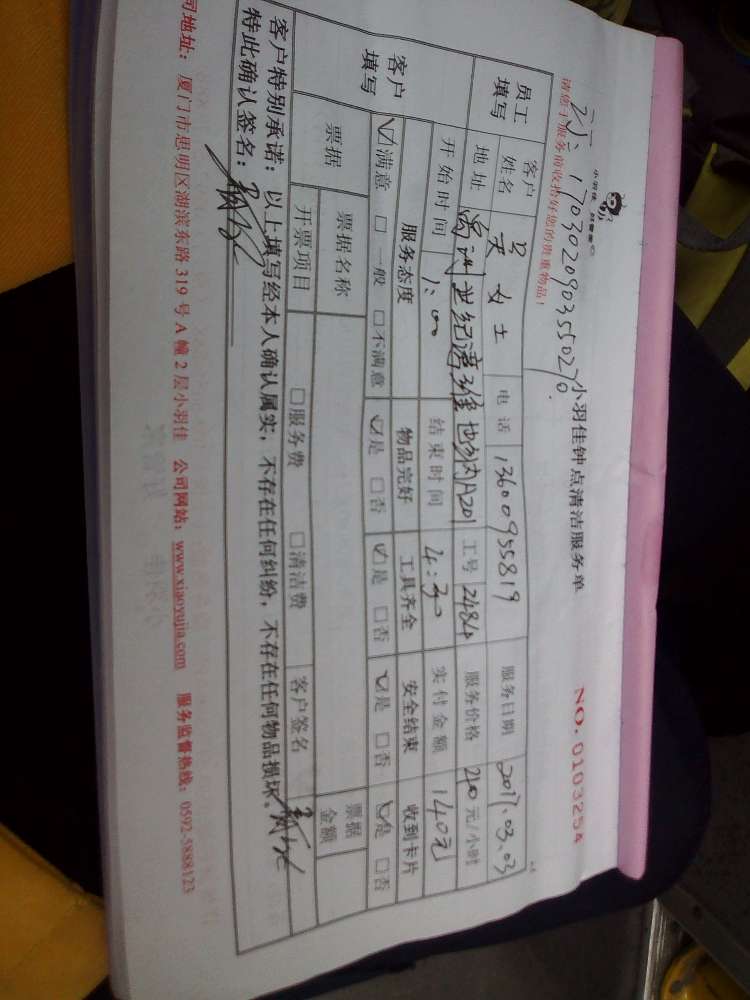 小羽佳 好管家
小羽佳钟点清洁服务单
NO. 0103254
1703020903550270.
请您于服务前收拾好您的贵重物品!
员工填写
客户姓名 吴女士 电话 13600955819 服务日期 2017.03.03
地址 世纪 A201 工号 2484 服务价格 元/小时
开始时间 1:00 结束时间 4:30 实付金额 140元
客户填写
服务态度 物品完好 工具齐全 安全结束 收到卡片
☑满意 □一般 □不满意 ☑是 □否 ☑是 □否 ☑是 □否 ☑是 □否
票据 票据名称 票据金额
开票项目 □服务费 □清洁费 客户签名
客户特别承诺:以上填写经本人确认属实,不存在任何纠纷,不存在任何物品损坏。
特此确认签名:
司地址: 厦门市思明区湖滨东路 319 号 A 幢 2 层小羽佳 公司网站: www.xiaoyujia.com 服务监督热线: 0592-5888123